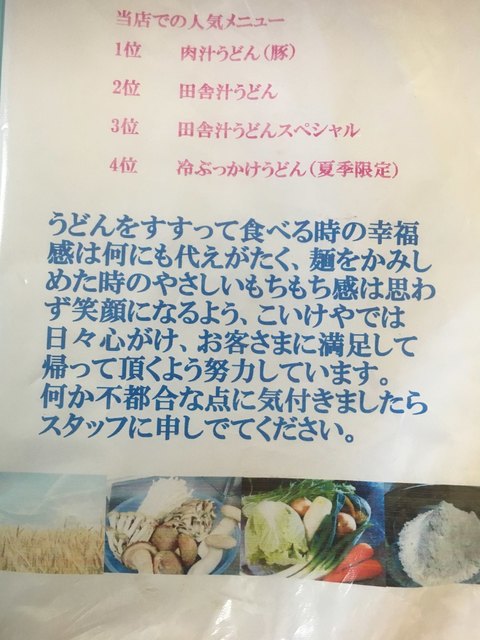 当店での人気メニュー
1位 肉汁うどん（豚）
2位 田舎汁うどん
3位 田舎汁うどんスペシャル
4位 冷ぶっかけうどん（夏季限定）
うどんをすすって食べる時の幸福
感は何にも代えがたく、麺をかみし
めた時のやさしいもちもち感は思わ
ず笑顔になるよう、こいけやでは
日々心がけ、お客さまに満足して
帰って頂くよう努力しています。
何か不都合な点に気付きましたら
スタッフに申しでてください。